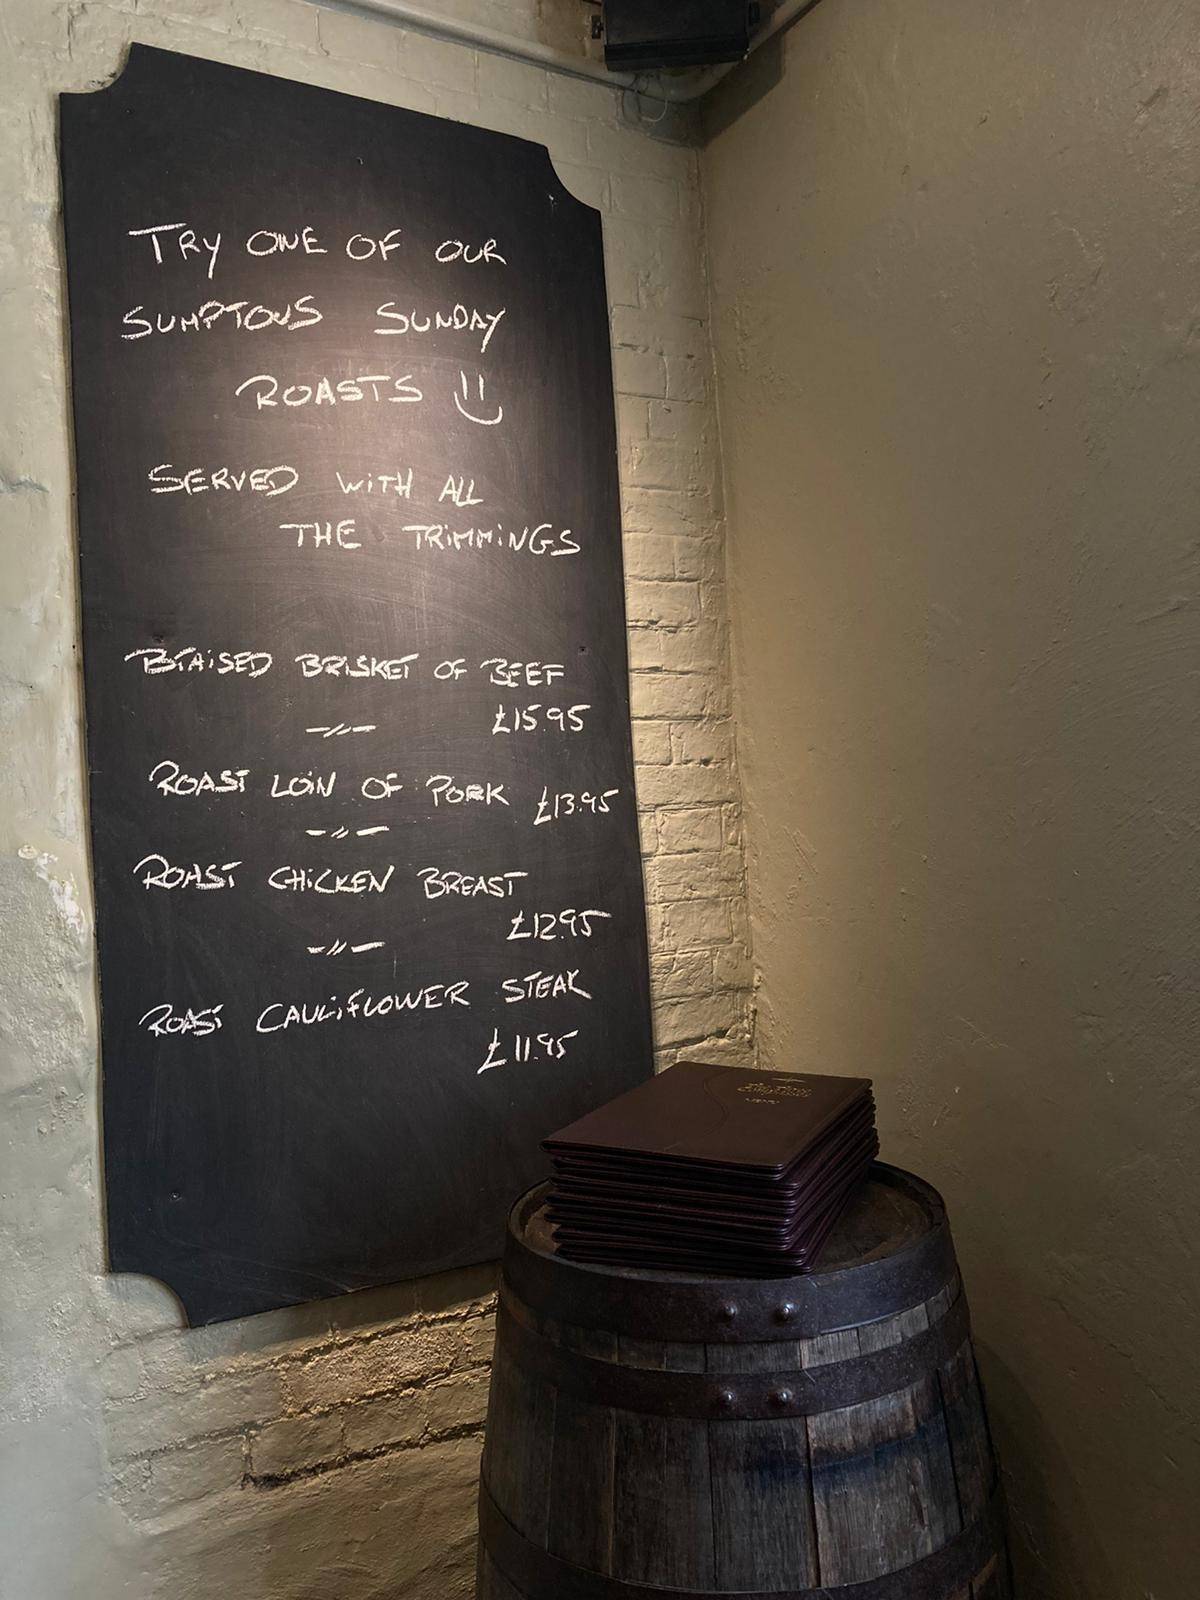 TRY ONE OF OUR
SUMPTOUS SUNDAY
ROASTS
SERVED WITH ALL
THE TRIMMINGS
BRAISED BRISKET OF BEEF
£15.95
ROAST LOIN OF PORK £13.95
ROAST CHICKEN BREAST
£12.95
ROAST CAULIFLOWER STEAK
£11.95
MENU